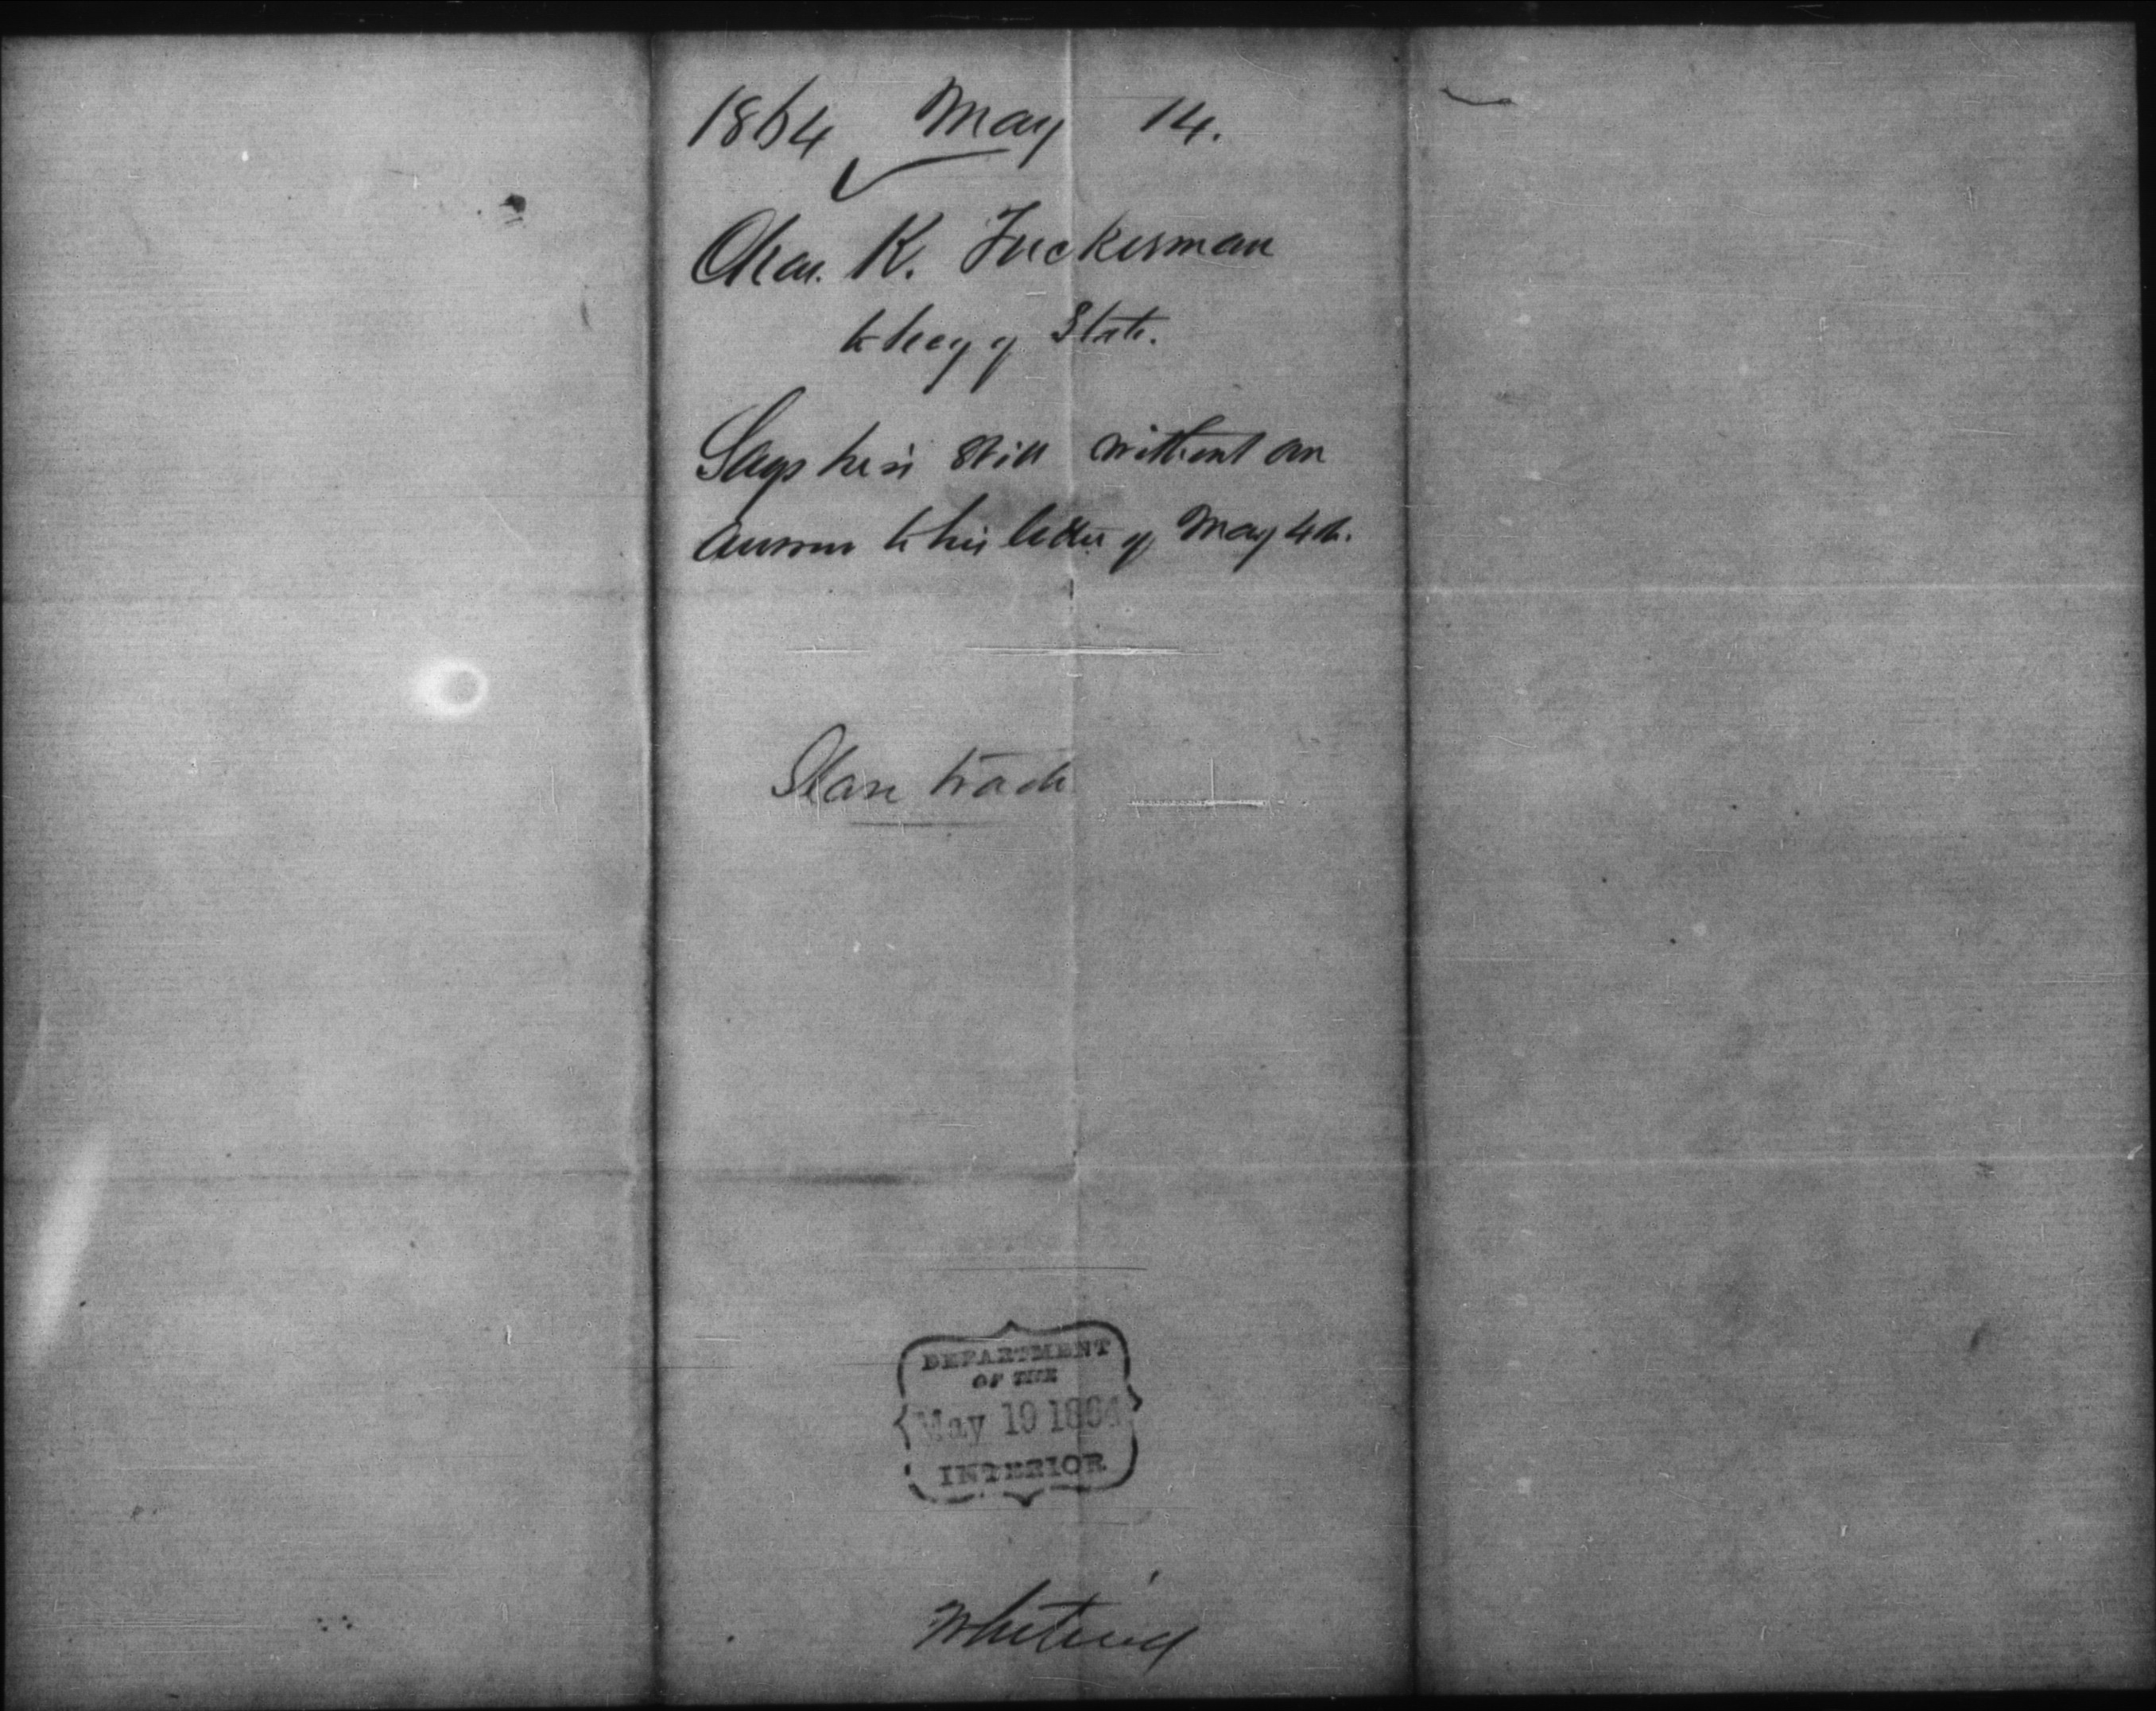 1864 May 14.
Chas. K. Tuckerman
to Secy of State.
Says he is still without an
answer to his letter of May 4th.
Slave trade
DEPARTMENT
OF THE
May 19 1864
INTERIOR
Whiting